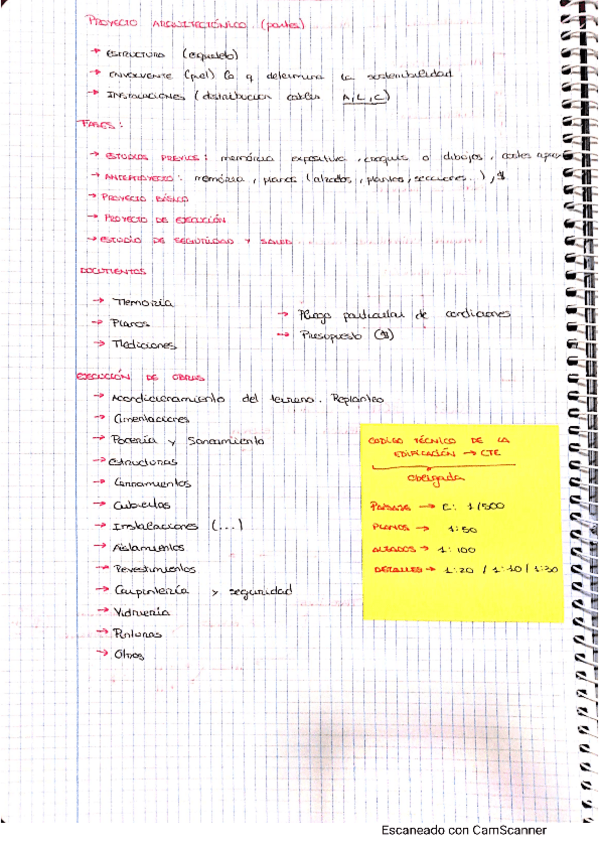 PROYECTO ARQUITECTÓNICO (partes)
→ ESTRUCTURA (esqueleto)
→ ENVOLVENTE (piel) lo q determina la sostenibilidad
→ INSTALACIONES (distribucion cables A, L, C)
FASES:
→ ESTUDIOS PREVIOS: memória expositiva, croquis o dibujos, costes aprox
→ ANTEPROYECTO: memória, planos (alzados, plantas, secciones.), $
→ PROYECTO BÁSICO
→ PROYECTO DE EJECUCIÓN
→ ESTUDIO DE SEGURIDAD Y SALUD
DOCUMENTOS
→ Memoria
→ Planos
→ Mediciones
→ Pliego particular de condiciones
→ Presupuesto ($)
EJECUCIÓN DE OBRAS
→ Acondicionamiento del terreno. Replanteo
→ Cimentaciones
→ Pocería y Saneamiento
→ Estructuras
→ Cerramientos
→ Cubiertas
→ Instalaciones (...)
→ Aislamientos
→ Revestimientos
→ Carpintería y seguridad
→ Vidriería
→ Pinturas
→ Otros
CODIGO TÉCNICO DE LA
EDIFICACIÓN → CTE
obligada
→ E: 1/500
PLANOS → 1:50
ALZADOS → 1:100
DETALLES → 1:20 / 1:10 / 1:30
Escaneado con CamScanner